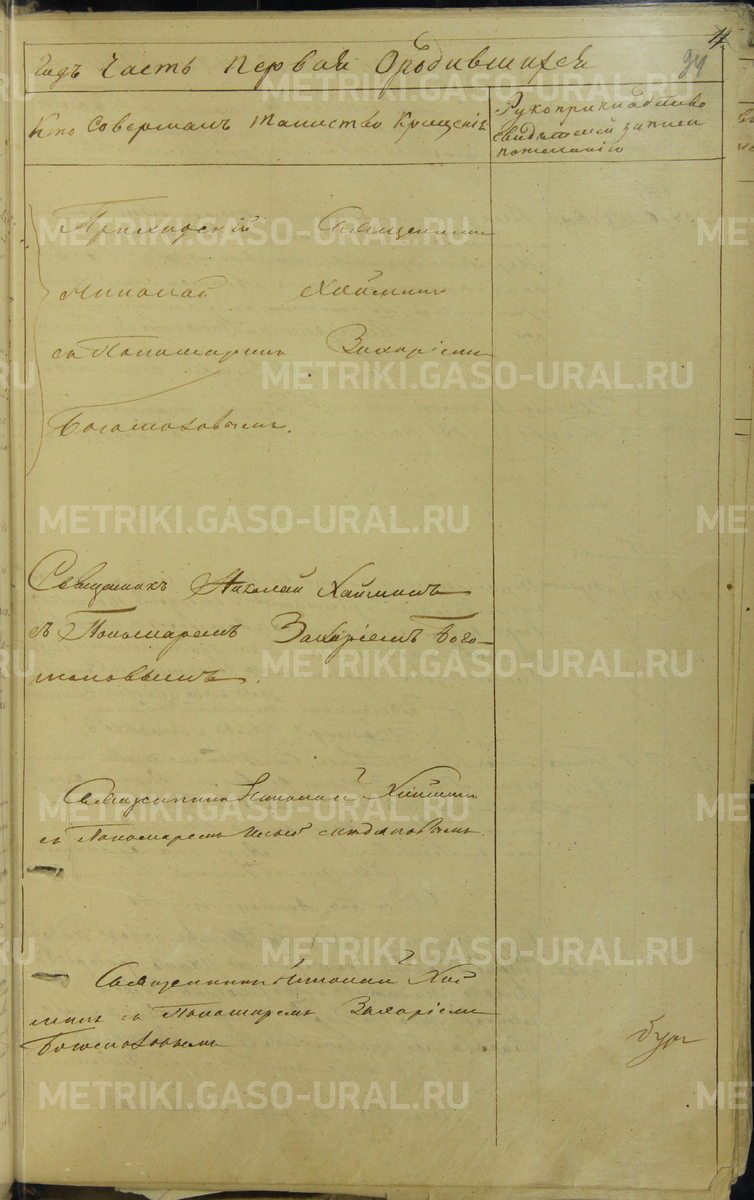 Годъ Часть Первая О родившихся
Кто Совершалъ таинство Крещенія
Рукоприкладство
свидѣтелей записи
по желанію
Приходскій Священникъ
Николай Хайминъ
съ Пономаремъ Захаріемъ
Богомоловымъ.
Священникъ Николай Хайминъ
съ Пономаремъ Захаріемъ Бого-
моловымъ.
Священникъ Николай Хайминъ
съ Пономаремъ
Священникъ Николай Хай
минъ съ Пономаремъ Захаріемъ
Богомоловымъ
METRIKI.GASO-URAL.RU